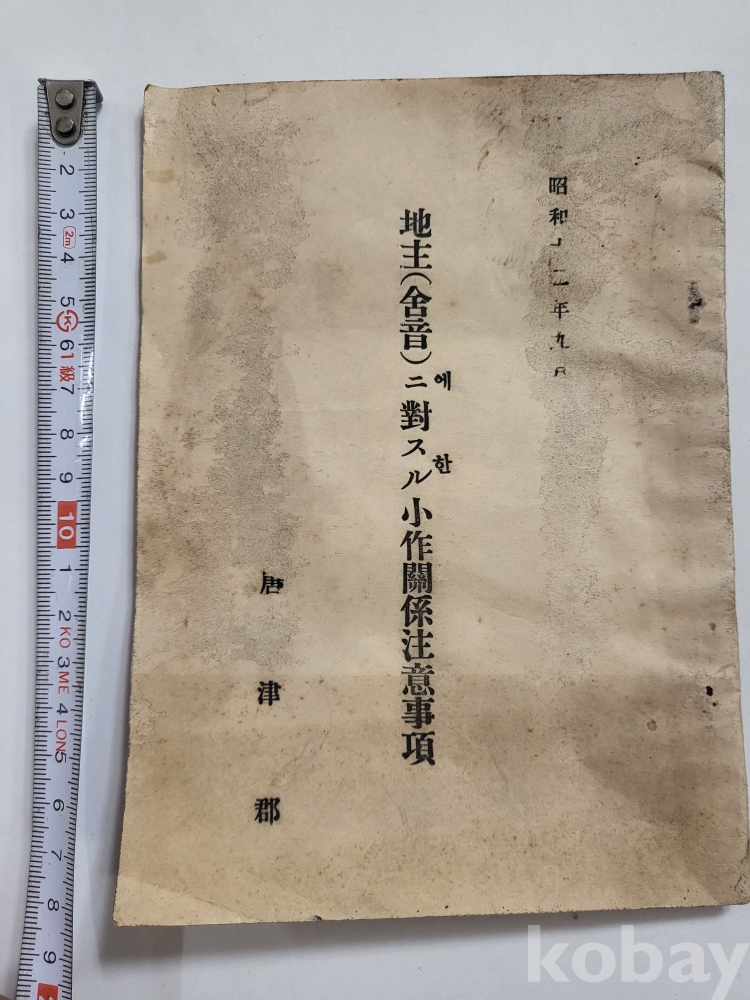 昭和二年九月
地主(舍音)ニ對スル小作關係注意事項
에 한
唐津郡
2 3 4 5 6 7 8 9 10 1 2 3 4 5 6 7 8 9
2m
1級
KOMELON
kobay